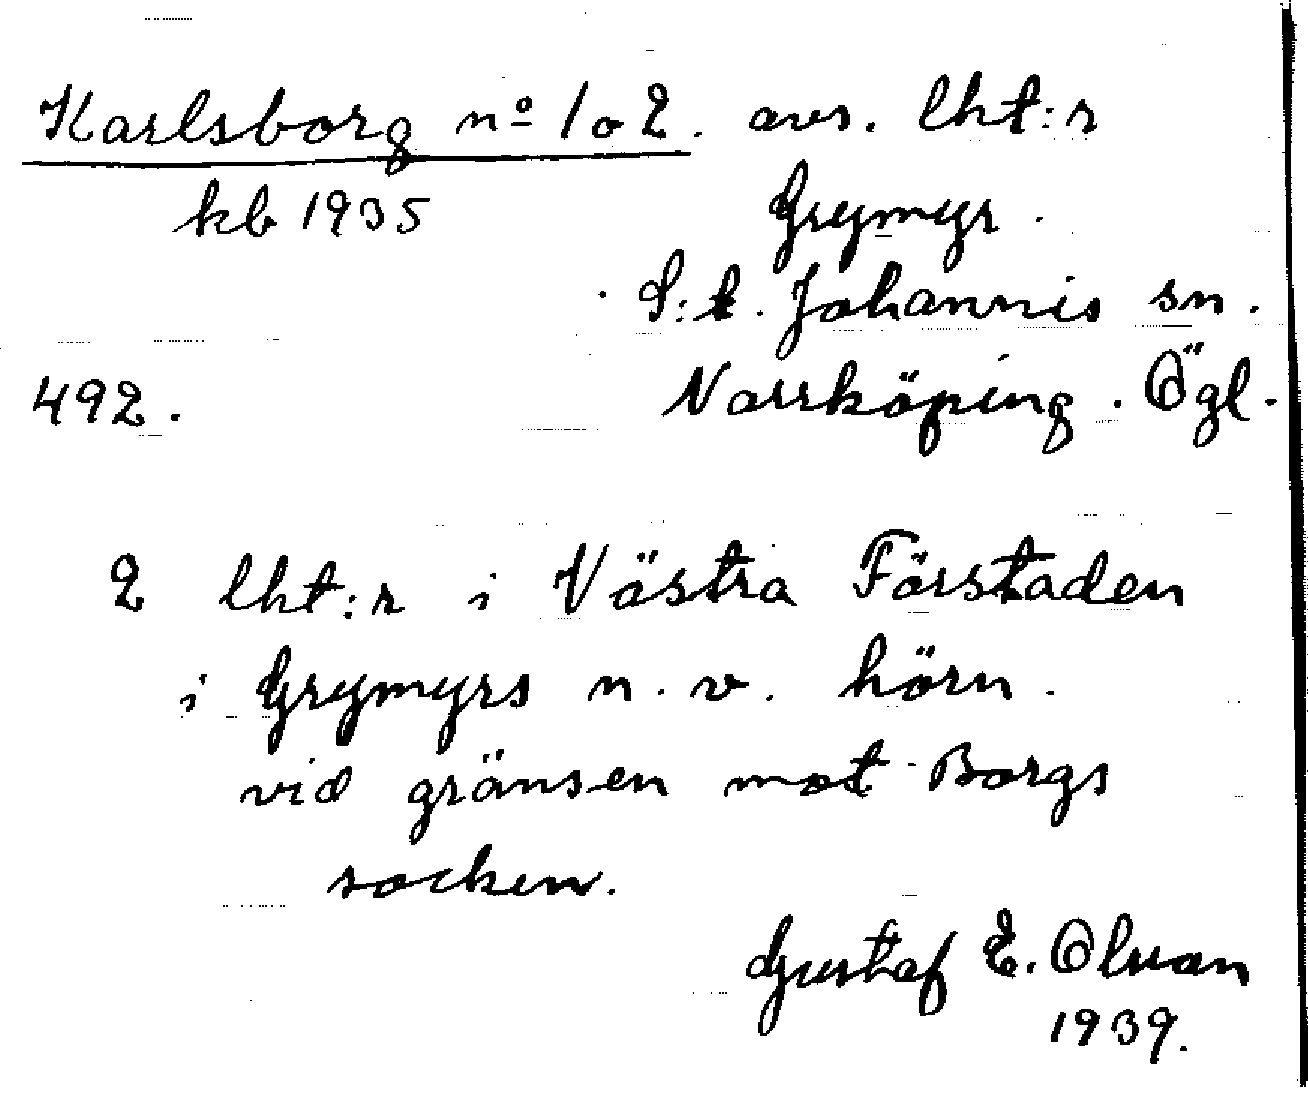 Karlsborg nº 1 o 2. avs. lht:r
kb 1935 Grymyr.
S:t. Johannis sn.
492. Norrköping. Ögl.
2 lht:r i Västra Förstaden
i Grymyrs n. v. hörn.
vid gränsen mot Borgs
socken.
Gustaf E. Olsson
1939.